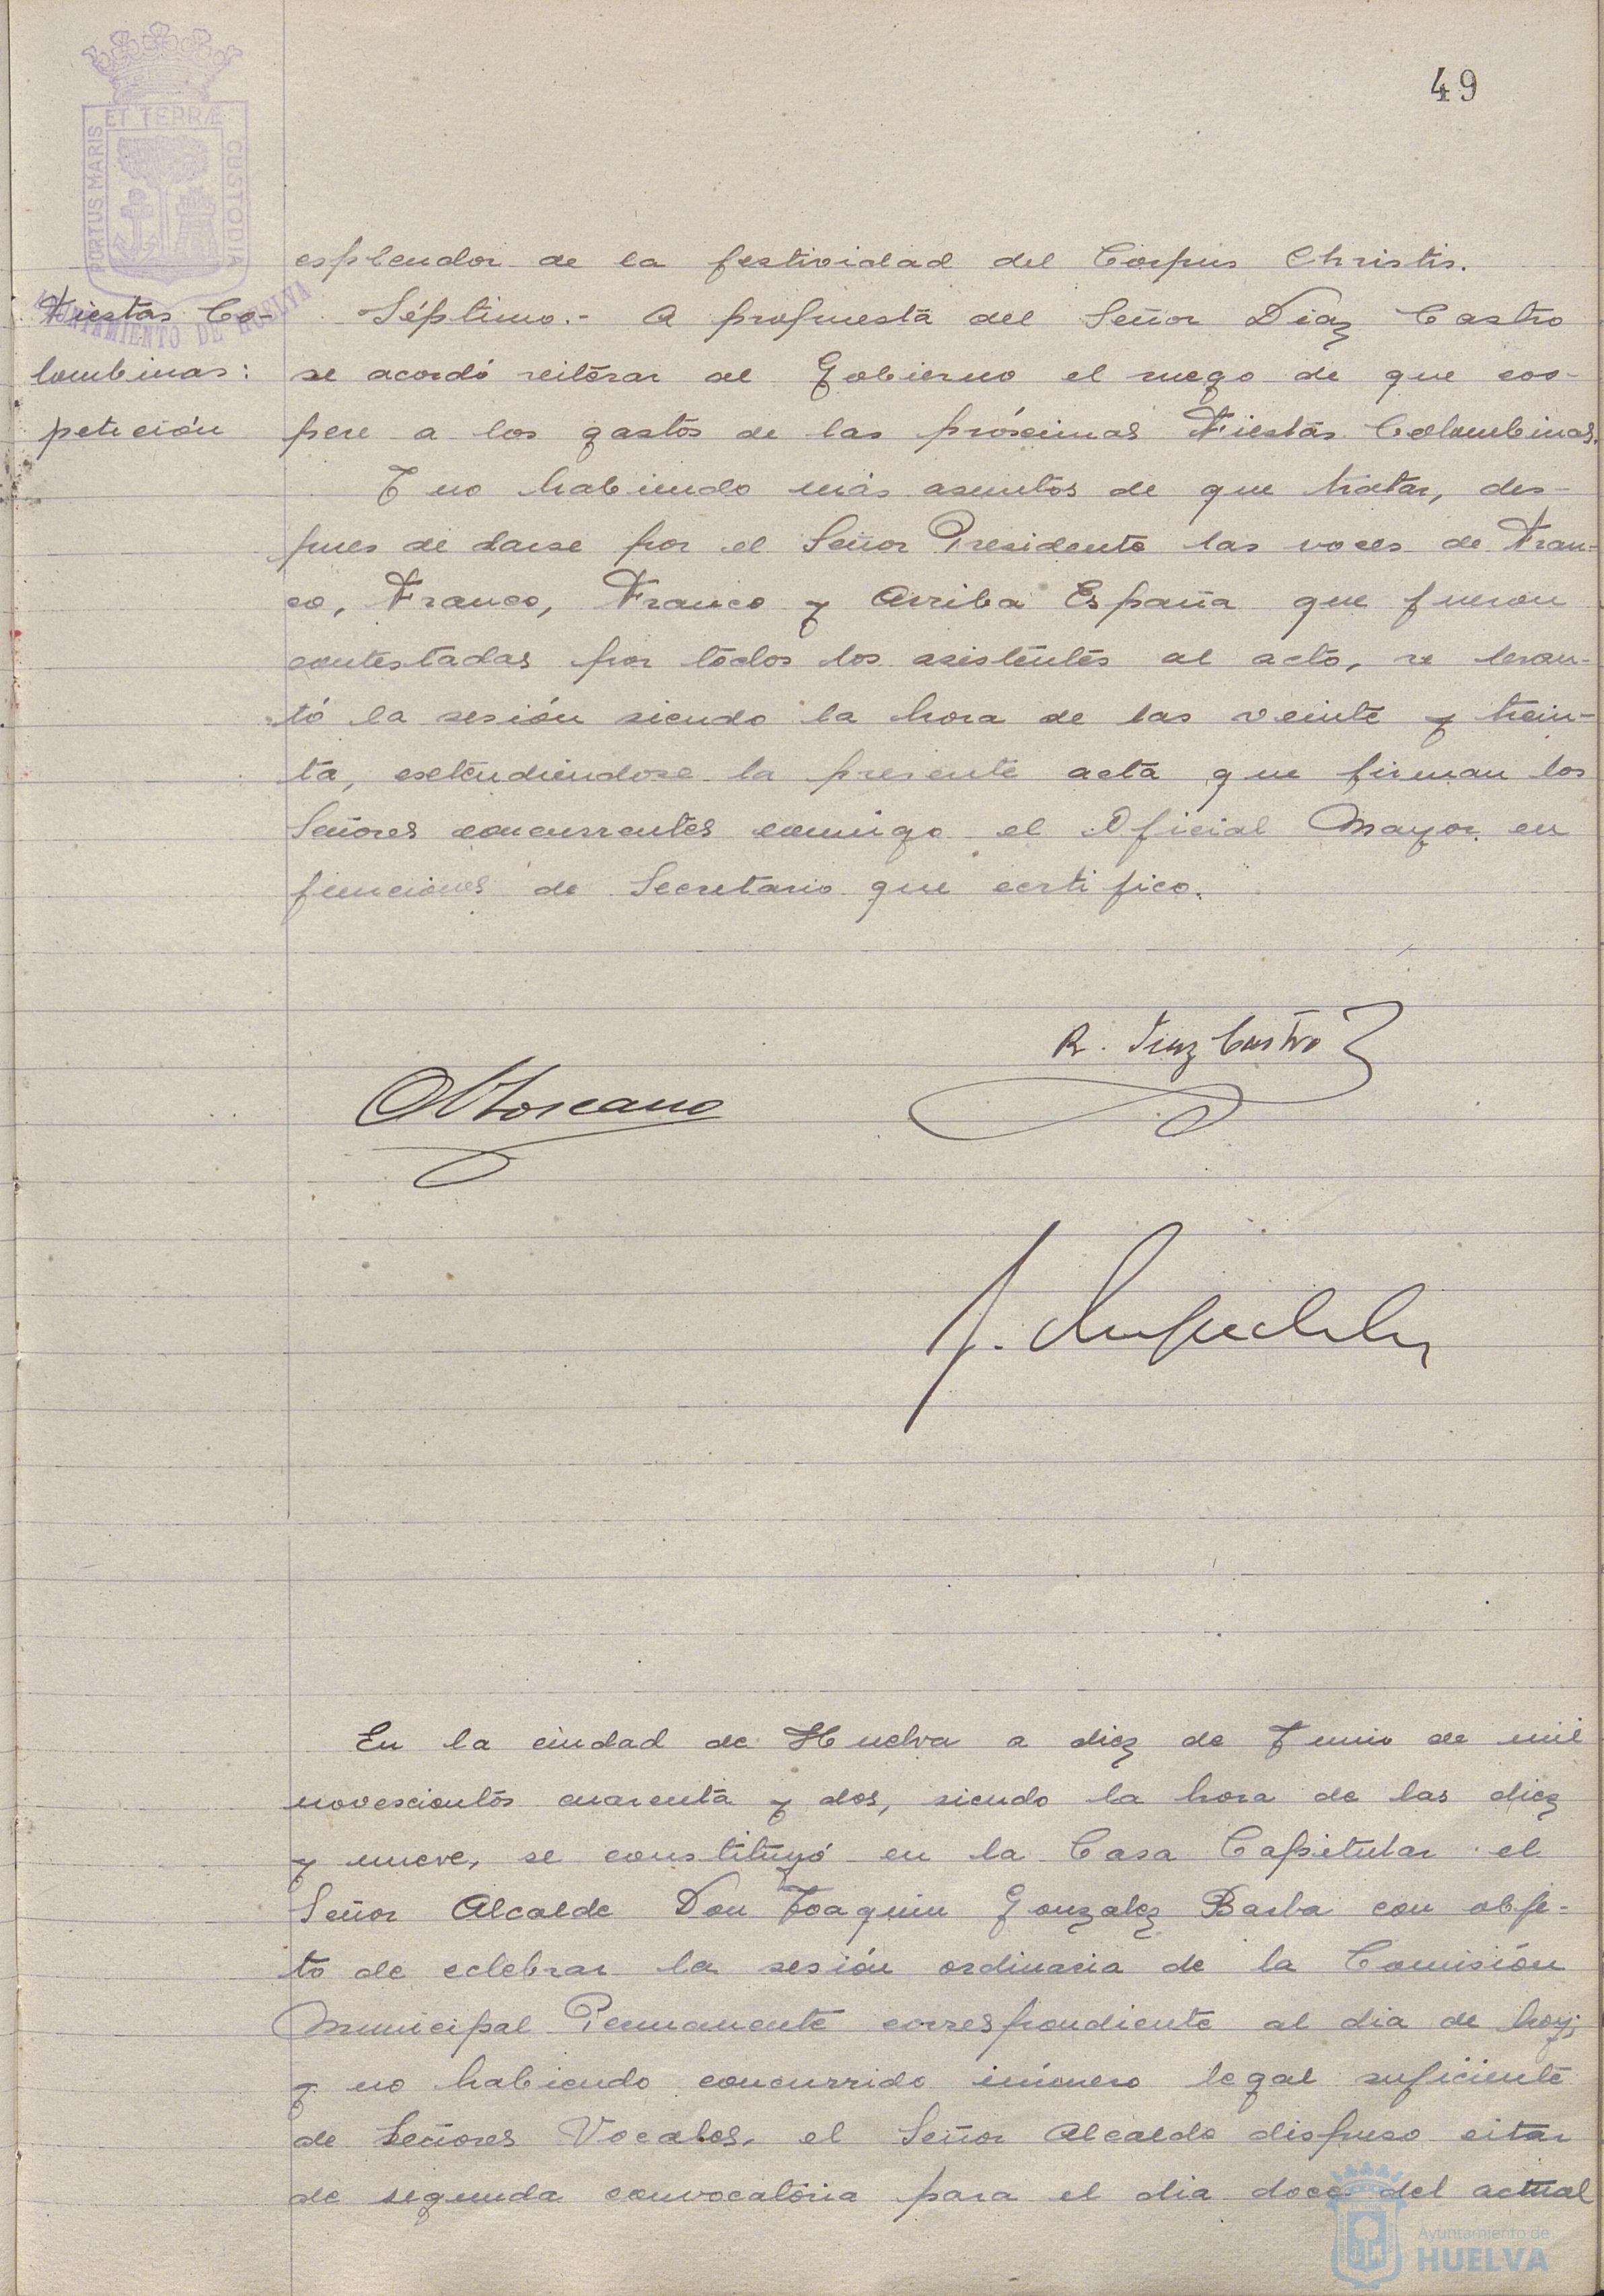 49
PORTUS MARIS ET TERRÆ CUSTODIA
AYUNTAMIENTO DE HUELVA
esplendor de la festividad del Corpus Christis.
Fiestas Co-
lombinas:
petición
Séptimo.- A propuesta del Señor Díaz Castro
se acordó reiterar al Gobierno el ruego de que coo-
pere a los gastos de las próximas Fiestas Colombinas.
Y no habiendo más asuntos de que tratar, des-
pues de darse por el Señor Presidente las voces de Fran-
co, Franco, Franco y Arriba España que fueron
contestadas por todos los asistentes al acto, se levan-
tó la sesión siendo la hora de las veinte y trein-
ta, extendiéndose la presente acta que firman los
Señores concurrentes conmigo el Oficial Mayor en
funciones de Secretario que certifico.
R. Diaz Castro
Toscano
En la ciudad de Huelva a diez de Junio de mil
novescientos cuarenta y dos, siendo la hora de las diez
y nueve, se constituyó en la Casa Capitular el
Señor Alcalde Don Joaquin Gonzalez Barba con obje-
to de celebrar la sesión ordinaria de la Comisión
Municipal Permanente correspondiente al dia de hoy;
y no habiendo concurrido número legal suficiente
de Señores Vocales, el Señor Alcalde dispuso citar
de segunda convocatoria para el dia doce del actual
Ayuntamiento de
HUELVA